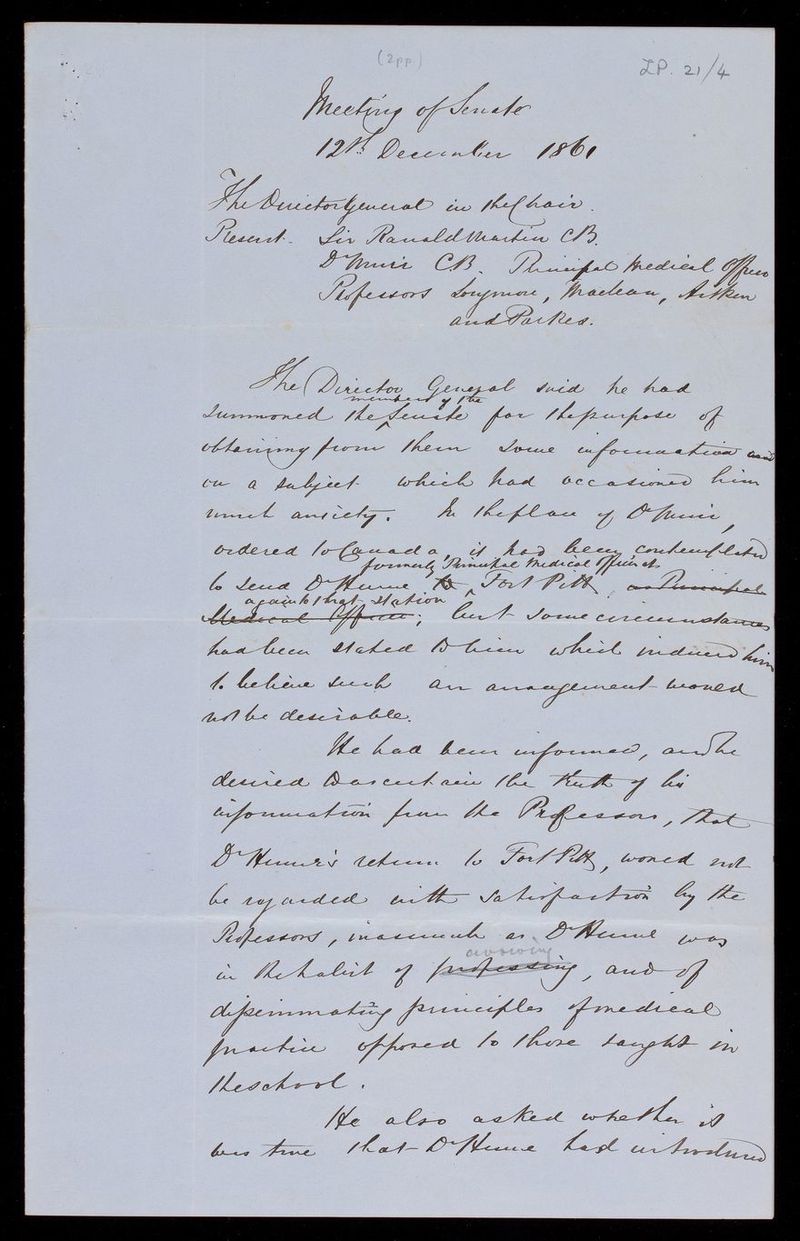 (2pp)
LP. 21/4
Meeting of Senate
12th December 1861
The Director General in the Chair.
Present. Sir Ranald Martin CB.
Dr Muir CB. Principal Medical Officer
Professors Longmore, Maclean, Aitken
and Parkes.
The Director General said he had
members of the
summoned the Senate for the purpose of
obtaining from them some information and
on a subject which had occasioned him
much anxiety. In the place of Dr Muir,
ordered to Canada, it had been contemplated
formerly Principal Medical Officer at
to send Dr Hume to Fort Pitt, as Principal
again to that station
Medical Officer; but some circumstances
had been stated to him which induced him
to believe such an arrangement would
not be desirable.
He had been informed, and he
desired to ascertain the truth of his
information from the Professors, that
Dr Hume's return to Fort Pitt, would not
be regarded with satisfaction by the
Professors, inasmuch as Dr Hume was
avowing
in the habit of professing, and of
disseminating principles of medical
practice opposed to those taught in
the school.
He also asked whether it
was true that Dr Hume had introduced